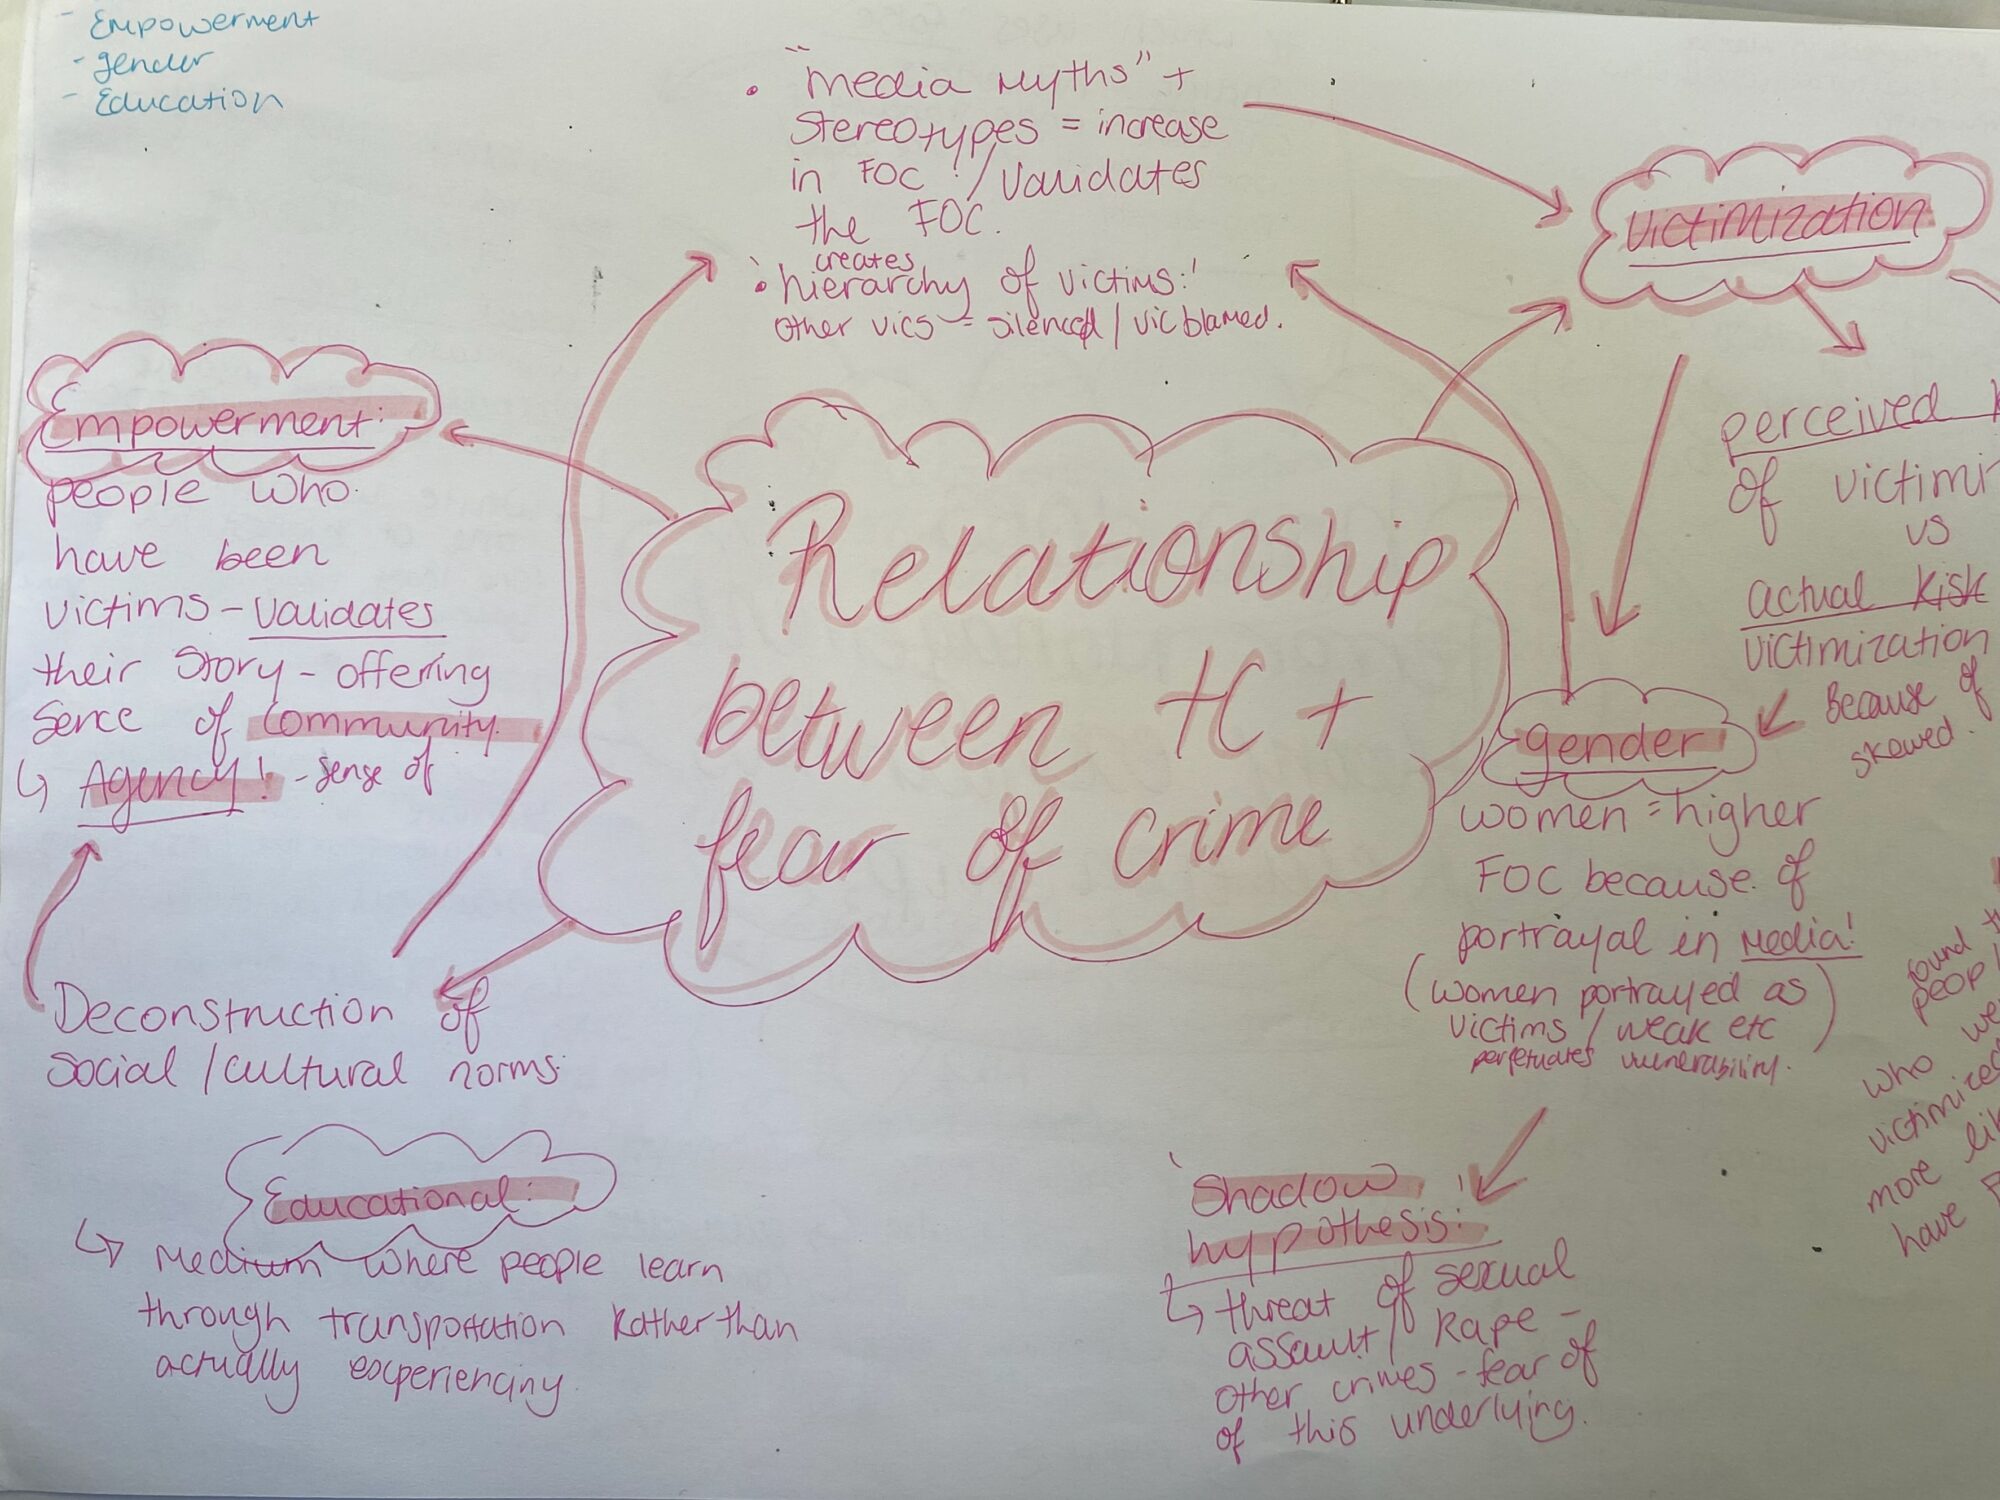 - Empowerment
- gender
- Education
• "media myths" +
stereotypes = increase
in FOC / validates
the FOC.
creates
• 'hierarchy of victims:'
other vics = silenced / vic blamed.
Victimization
Empowerment:
people who
have been
victims - validates
their story - offering
sence of community.
↳ Agency! - sense of
Relationship
between tC +
fear of crime
perceived
of victimi
vs
actual Risk
victimization
Because of
skewed.
gender
women = higher
FOC because of
portrayal in media!
(women portrayed as
victims / weak etc)
perpetuates vulnerability.
found
peopl
who we
victimized
more li
have
Deconstruction of
social / cultural norms.
Educational:
↳ Medium where people learn
through transportation Rather than
actually experiencing
'Shadow
hypothesis:'
↳ threat of sexual
assault / Rape -
other crimes - fear of
of this underlying.